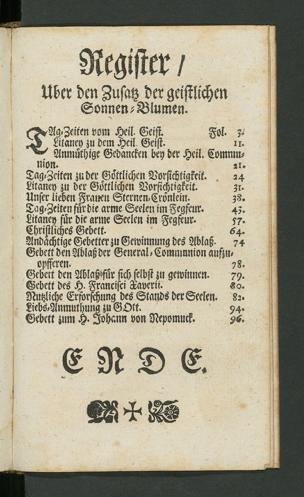 Register /
Uber den Zusatz der geistlichen
Sonnen-Blumen.
TAg-Zeiten vom Heil. Geist. Fol. 3.
Litaney zu dem Heil. Geist. 11.
Anmüthige Gedancken bey der Heil. Commu-
nion. 21.
Tag-Zeiten zu der Göttlichen Vorsichtigkeit. 24
Litaney zu der Göttlichen Vorsichtigkeit. 31.
Unser lieben Frauen Sternen-Crönlein. 38.
Tag-Zeiten für die arme Seelen im Fegfeur. 43.
Litaney für die arme Seelen im Fegfeur. 57.
Christliches Gebett. 64.
Andächtige Gebetter zu Gewinnung des Ablaß. 74
Gebett den Ablaß der General-Communion aufzu-
opfferen. 78.
Gebett den Ablaß für sich selbst zu gewinnen. 79.
Gebett des H. Francisci Xaverii. 80.
Nutzliche Erforschung des Stands der Seelen. 82.
Liebs-Anmuthung zu GOtt. 94.
Gebett zum H. Johann von Nepomuck. 96.
ENDE.